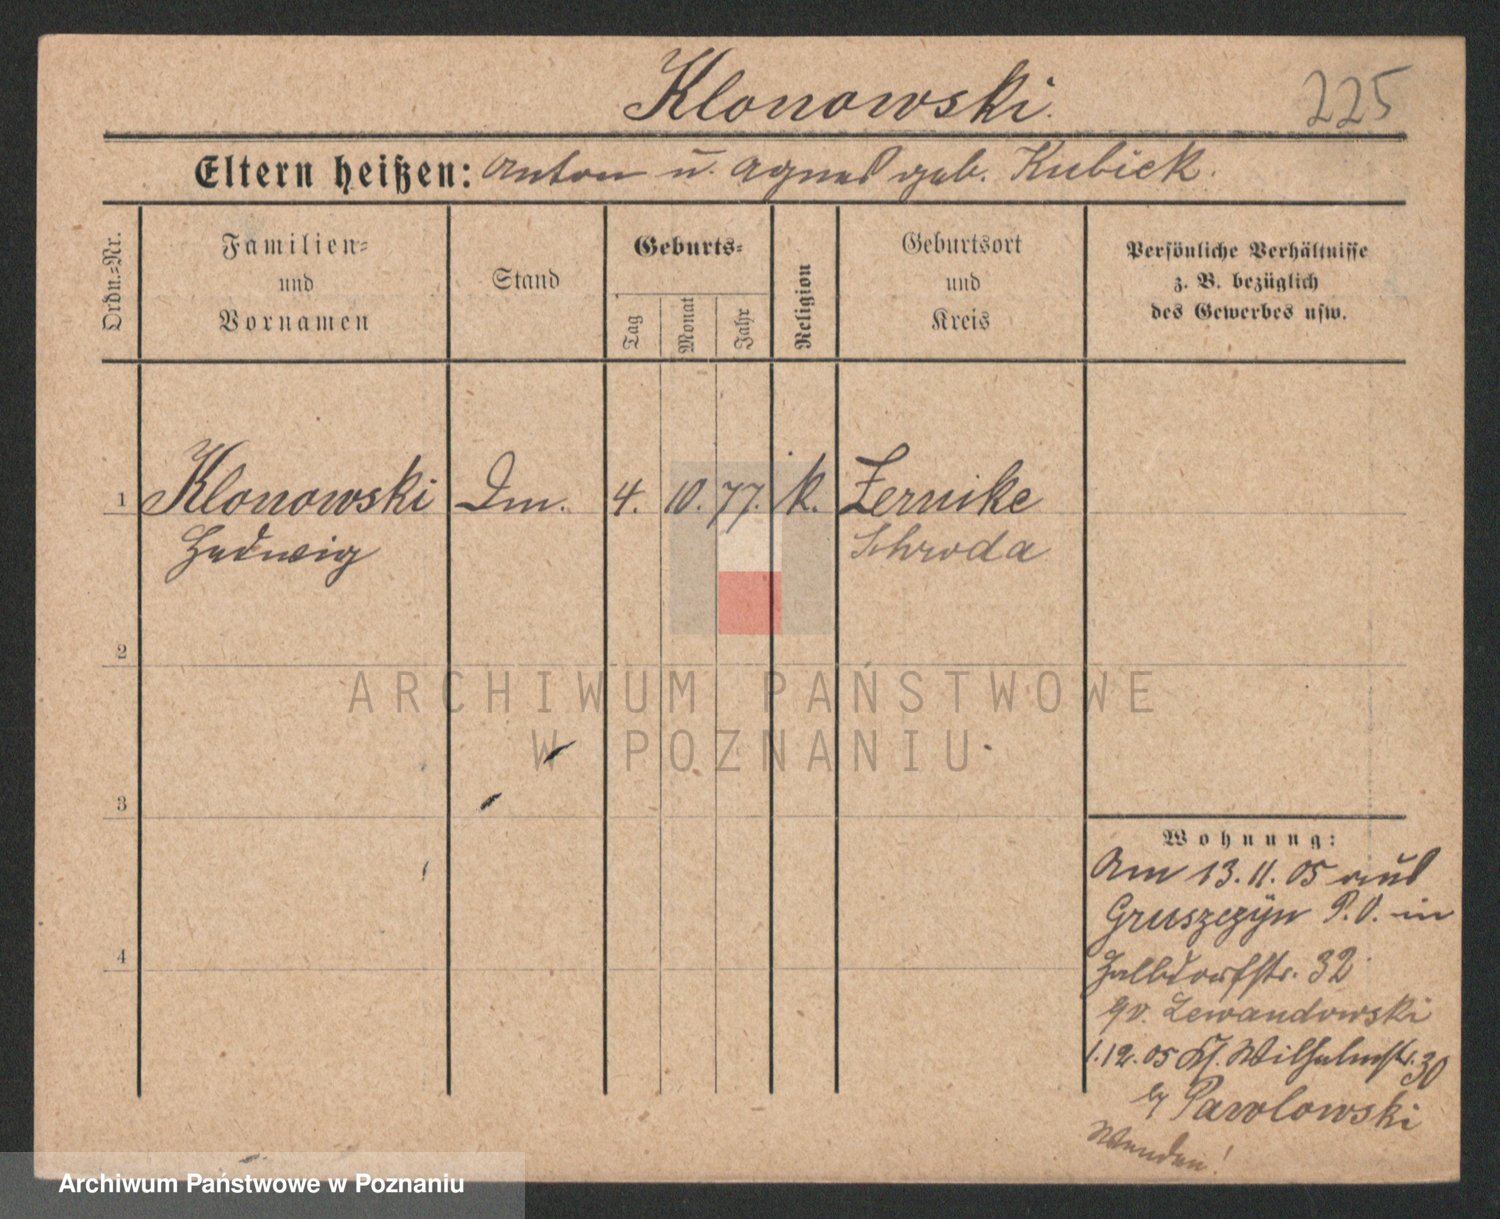 Klonowski.
225
Eltern heißen: Anton u. Agnes geb. Kubick.
Ordn.-Nr.
Familien-
und
Vornamen
Stand
Geburts-
Tag
Monat
Jahr
Religion
Geburtsort
und
Kreis
Persönliche Verhältnisse
z. B. bezüglich
des Gewerbes usw.
1 Klonowski Dm. 4. 10. 77. k. Zernike
Hedwig Schroda
2
ARCHIWUM PAŃSTWOWE
W POZNANIU
3
Wohnung:
Am 13.11.05 aus
Gruszczyn P.O. in
Halbdorfstr. 32
Lewandowski
4
1.12.05 Kl. Wilhelmstr. 30
Pawlowski
Wenden!
Archiwum Państwowe w Poznaniu